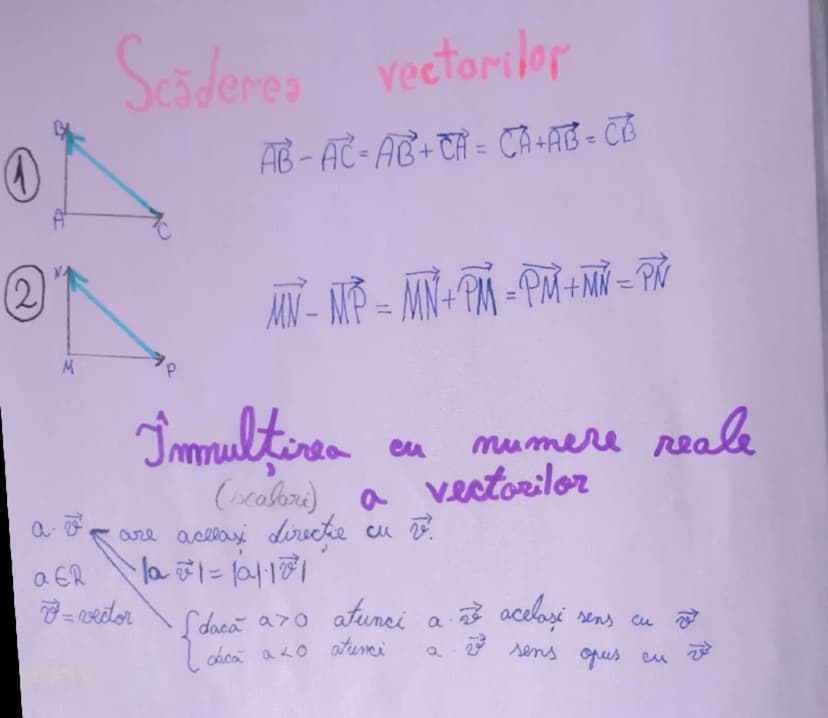 Scăderea vectorilor
1
B
A
C
AB⃗ - AC⃗ = AB⃗ + CA⃗ = CA⃗ + AB⃗ = CB⃗
2
N
M
P
MN⃗ - MP⃗ = MN⃗ + PM⃗ = PM⃗ + MN⃗ = PN⃗
Înmulțirea cu numere reale
(scalari) a vectorilor
a · v⃗ are aceeași direcție cu v⃗.
a∈R |a v⃗| = |a|·|v⃗|
v⃗ = vector
{ dacă a > 0 atunci a · v⃗ același sens cu v⃗
dacă a < 0 atunci a · v⃗ sens opus cu v⃗